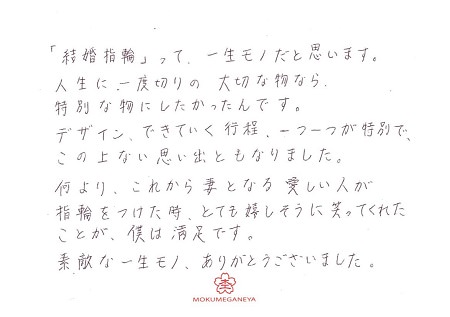 「結婚指輪」って、一生モノだと思います。
人生に、一度切りの 大切な物なら、
特別な物にしたかったんです。
デザイン、できていく行程、一つ一つが特別で、
この上ない思い出ともなりました。
何より、これから妻となる 愛しい人が
指輪をつけた時、とても嬉しそうに笑ってくれた
ことが、僕は満足です。
素敵な一生モノ、ありがとうございました。
杢
MOKUMEGANEYA